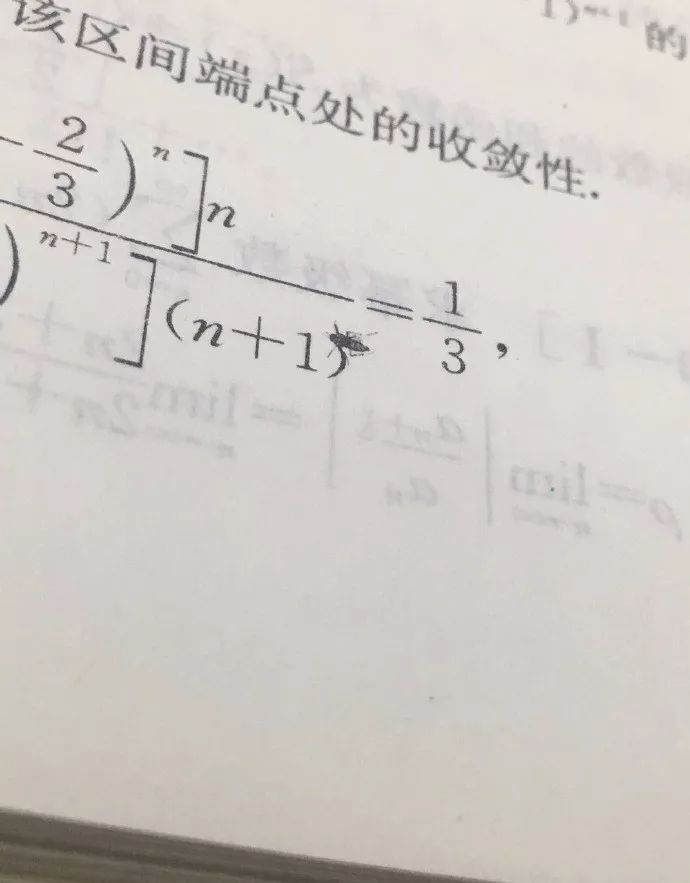 1)ⁿ⁻¹ 的
该区间端点处的收敛性.
-\frac{2}{3})^n]n
)^{n+1}](n+1)
=\frac{1}{3},